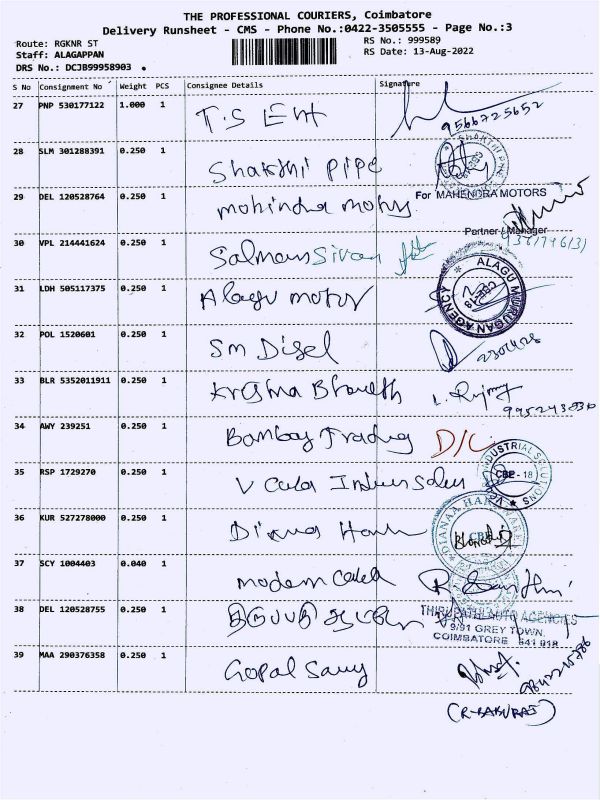 THE PROFESSIONAL COURIERS, Coimbatore
Delivery Runsheet - CMS - Phone No.:0422-3505555 - Page No.:3
Route: RGKNR ST
RS No.: 999589
Staff: ALAGAPPAN
RS Date: 13-Aug-2022
DRS No.: DCJB99958903
S No Consignment No Weight PCS Consignee Details Signature
27 PNP 530177122 1.000 1 T.S Ent 9566725652
28 SLM 301288391 0.250 1 Shakthi pipe
29 DEL 120528764 0.250 1 mohindra motors For MAHENDRA MOTORS
Partner / Manager
30 VPL 214441624 0.250 1 Salmans Sivan
31 LDH 505117375 0.250 1 Alagu motor ALAGU MURUGAN AGENCY
32 POL 1520601 0.250 1 Sm Disel
33 BLR 5352011911 0.250 1 Krishna Bharath
34 AWY 239251 0.250 1 Bombay Trading D/C
35 RSP 1729270 0.250 1 V Cela INDUSTRIAL SOLUTIONS CBE - 18
36 KUR 527278000 0.250 1 Diana Hard DIANAA HARDWARE
37 SCY 1004403 0.040 1 modern
38 DEL 120528755 0.250 1 திருப்பதி THIRUPATHI AUTO AGENCIES
9/91 GREY TOWN,
COIMBATORE - 641 018
39 MAA 290376358 0.250 1 Gopal Samy
(R-BABURAJ)